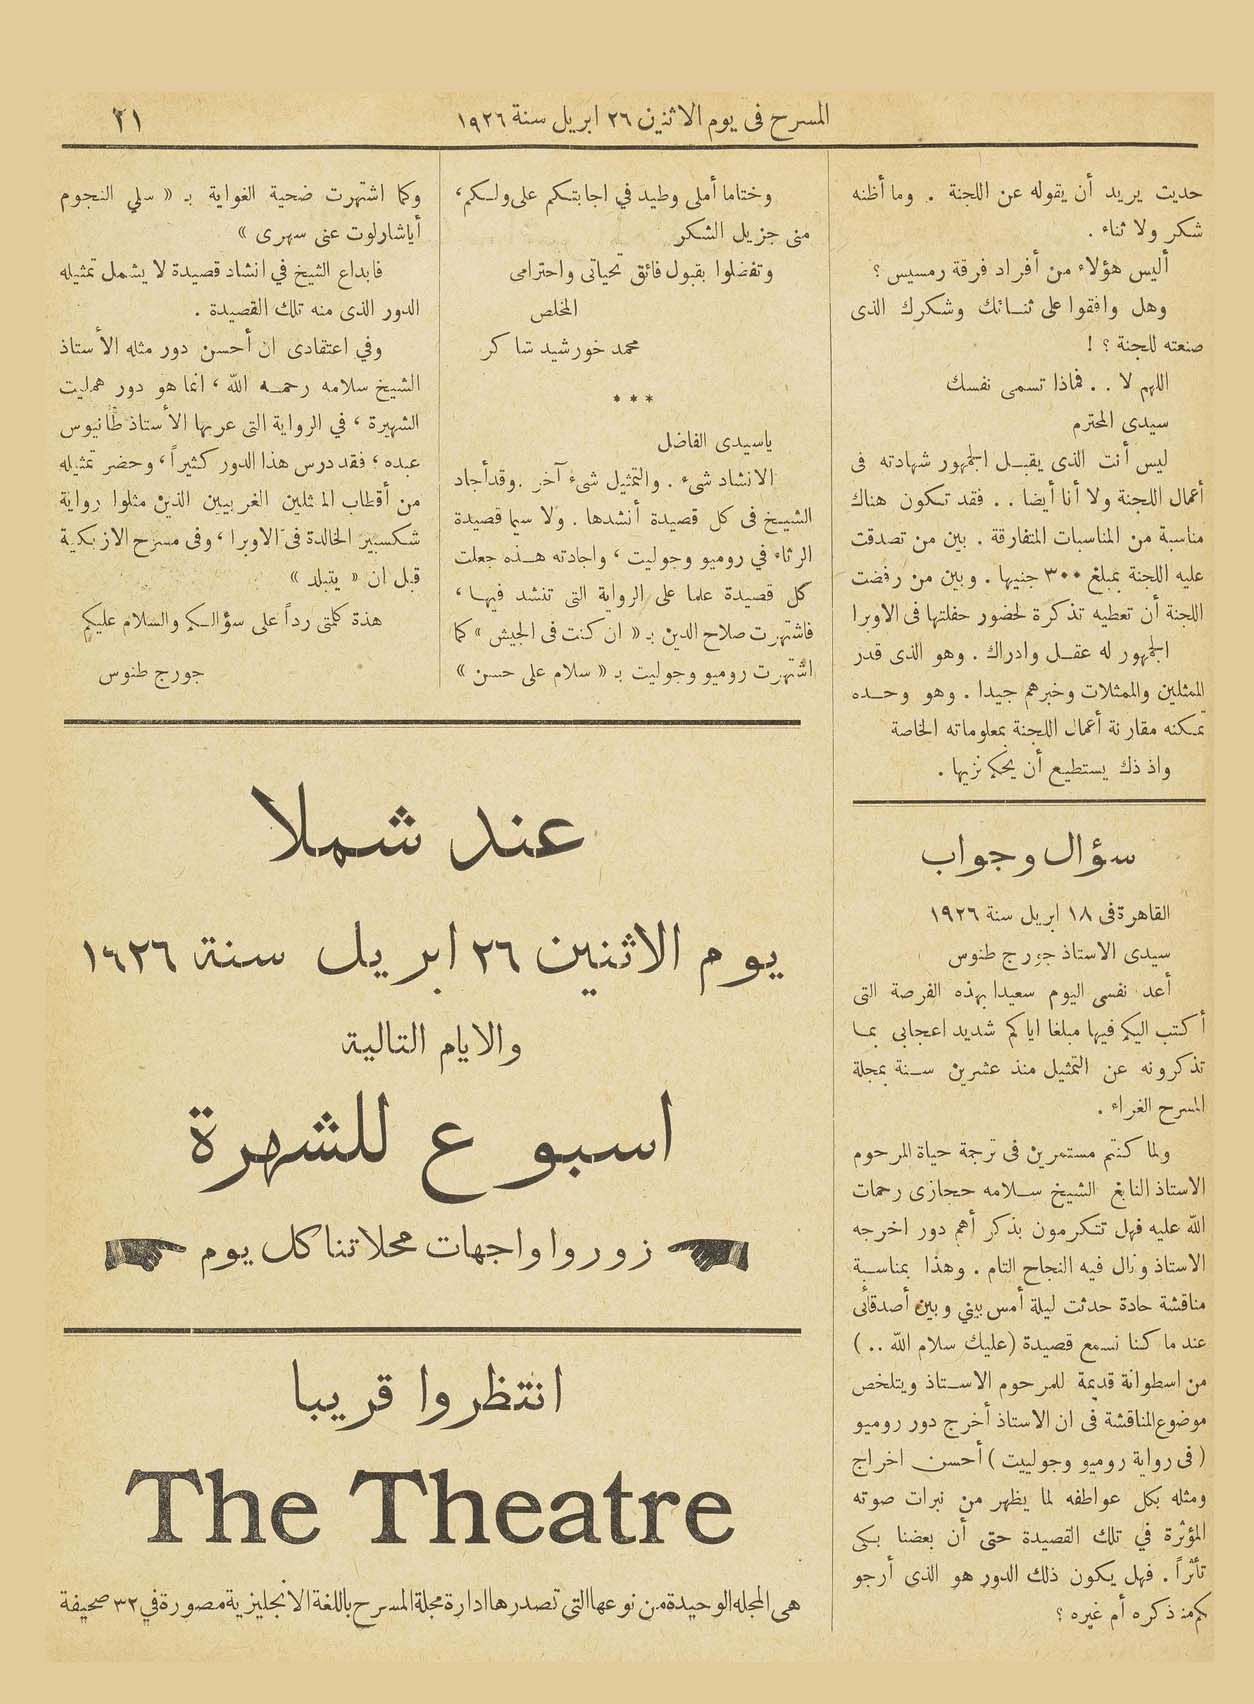 المسرح فى يوم الاثنين ٢٦ ابريل سنة ١٩٢٦
٢١
حديث يريد أن يقوله عن اللجنة . وما أظنه
شكر ولا ثناء .
أليس هؤلاء من أفراد فرقة رمسيس ؟
وهل وافقوا على ثنائك وشكرك الذى
صنعته للجنة ؟ !
اللهم لا . . فماذا تسمى نفسك
سيدى المحترم
ليس أنت الذى يقبل الجمهور شهادته فى
أعمال اللجنة ولا أنا أيضا . . فقد تكون هناك
مناسبة من المناسبات المتفارقة . بين من تصدقت
عليه اللجنة بمبلغ ٣٠٠ جنيها . وبين من رفضت
اللجنة أن تعطيه تذكرة لحضور حفلتها فى الاوبرا
الجمهور له عقل وادراك . وهو الذى قدر
الممثلين والممثلات وخبرهم جيدا . وهو وحده
تمكنه مقارنة أعمال اللجنة بمعلوماته الخاصة
واذ ذك يستطيع أن يحكم نزيها .
سؤال وجواب
القاهرة فى ١٨ ابريل سنة ١٩٢٦
سيدى الاستاذ جورج طنوس
أعد نفسى اليوم سعيدا بهذه الفرصة التى
أكتب اليكم فيها مبلغا اياكم شديد اعجابى بما
تذكرونه عن التمثيل منذ عشرين سنة بمجلة
المسرح الغراء .
ولما كنتم مستمرين فى ترجمة حياة المرحوم
الاستاذ النابغ الشيخ سلامه حجازى رحمات
الله عليه فهل تتكرمون بذكر أهم دور اخرجه
الاستاذ ونال فيه النجاح التام . وهذا بمناسبة
مناقشة حادة حدثت ليلة أمس بيني وبين أصدقائى
عند ما كنا نسمع قصيدة (عليك سلام الله ..)
من اسطوانة قديمة للمرحوم الاستاذ ويتلخص
موضوع المناقشة فى ان الاستاذ أخرج دور روميو
(فى رواية روميو وجولييت) أحسن اخراج
ومثله بكل عواطفه لما يظهر من نبرات صوته
المؤثرة في تلك القصيدة حتى أن بعضنا بكى
تأثراً . فهل يكون ذلك الدور هو الذى أرجو
كم منذ ذكره أم غيره ؟
وختاما أملى وطيد في اجابتكم على ولكم،
منى جزيل الشكر
وتفضلوا بقبول فائق تحياتى واحترامى
المخلص
محمد خورشيد شاكر
* * *
ياسيدى الفاضل
الانشاد شىء . والتمثيل شىء آخر . وقد أجاد
الشيخ فى كل قصيدة أنشدها . ولا سيما قصيدة
الرثاء في روميو وجوليت ، واجادته هذه جعلت
كل قصيدة علما على الرواية التى تنشد فيها ،
فاشتهرت صلاح الدين بـ « ان كنت فى الجيش » كما
اشتهرت روميو وجوليت بـ « سلام على حسن »
وكما اشتهرت ضحية الغواية بـ « سلي النجوم
أياشارلوت عنى سهرى »
فابداع الشيخ في انشاد قصيدة لا يشمل تمثيله
الدور الذى منه تلك القصيدة .
وفي اعتقادى ان أحسن دور مثله الأستاذ
الشيخ سلامه رحمه الله ، انما هو دور هملت
الشهيرة ، في الرواية التى عربها الأستاذ طانيوس
عبده ، فقد درس هذا الدور كثيراً ، وحضر تمثيله
من أقطاب الممثلين الغربيين الذين مثلوا رواية
شكسبير الخالدة فى الاوبرا ، وفى مسرح الازبكية
قبل ان « يتبلد »
هذة كلمتى رداً على سؤالكم والسلام عليكم
جورج طنوس
عند شملا
يوم الاثنين ٢٦ ابريل سنة ١٩٢٦
والايام التالية
اسبوع للشهرة
زوروا واجهات محلاتنا كل يوم
انتظروا قريبا
The Theatre
هى المجله الوحيدة من نوعها التى تصدرها ادارة مجلة المسرح باللغة الانجليزية مصورة في ٣٢ صحيفة